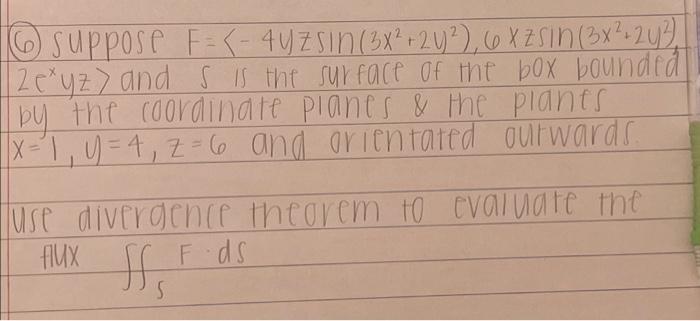 ⑥ suppose F=<-4yzsin(3x²+2y²),6xzsin(3x²+2y²),
2eˣyz> and S is the surface of the box bounded
by the coordinate planes & the planes
x=1, y=4, z=6 and orientated outwards.
use divergence theorem to evaluate the
flux ∬ₛ F·ds